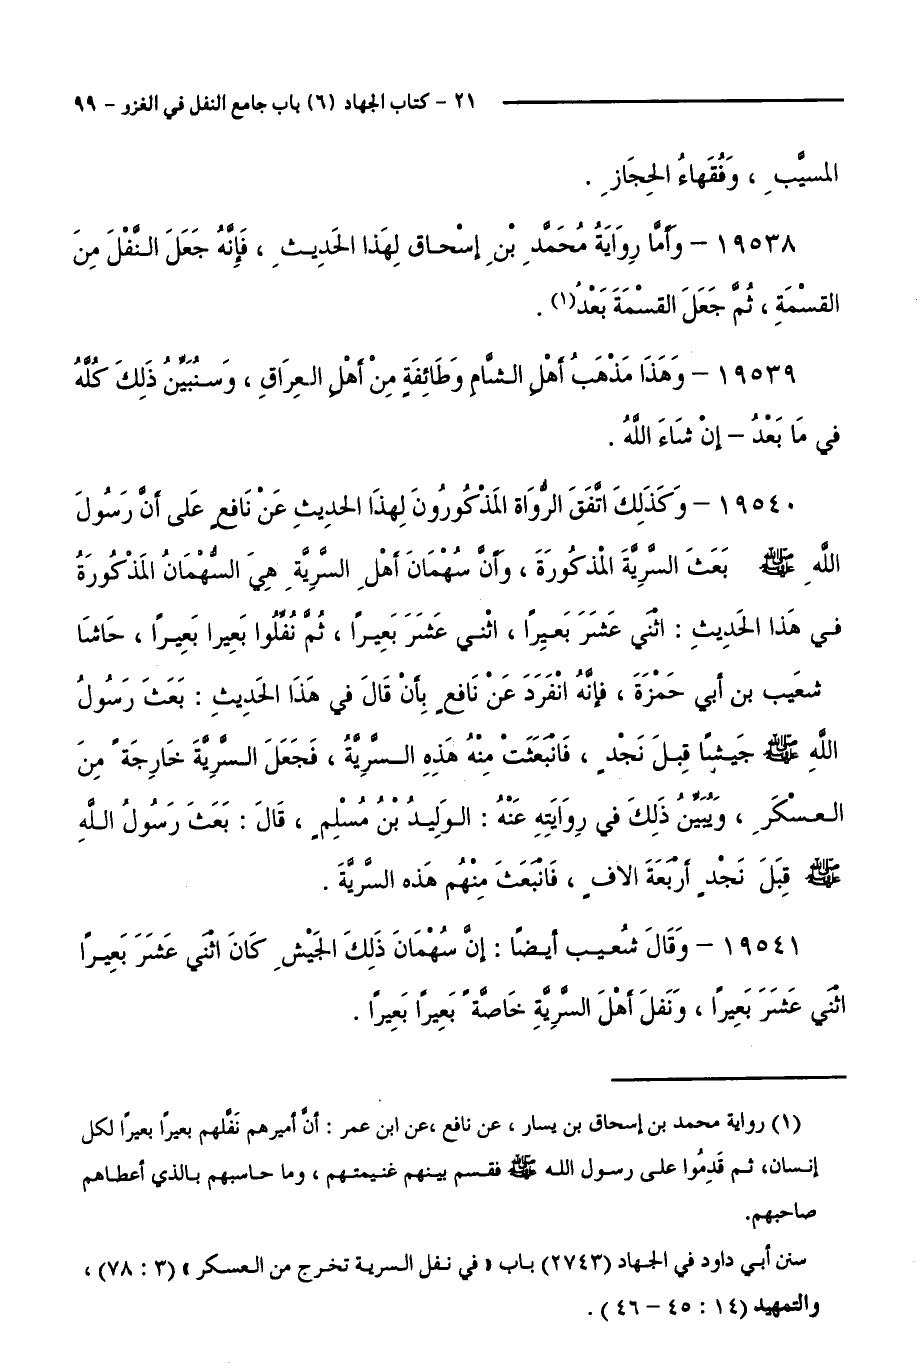 ٢١ - كتاب الجهاد (٦) باب جامع النفل في الغزو - ٩٩
المسيَّبِ ، وَفُقَهاءُ الحِجَازِ .
١٩٥٣٨ – وَأَمَّا رِوَايَةُ مُحَمَّدِ بْنِ إِسْحاق لِهَذا الحَدِيثِ ، فَإِنَّهُ جَعَلَ النَّفْلَ مِنَ
القسْمَةِ ، ثُمَّ جَعَلَ القسْمَةَ بَعْدُ(١) .
١٩٥٣٩ – وَهَذَا مَذْهَبُ أَهْلِ الشَّامِ وَطَائِفَةٍ مِنْ أَهْلِ العِرَاقِ ، وَسَنُبَيِّنُ ذَلِكَ كُلَّهُ
في مَا بَعْدُ – إِنْ شَاءَ اللَّهُ .
١٩٥٤٠ – وَكَذَلِكَ اتَّفَقَ الرُّوَاة المَذْكُورُونَ لِهذَا الحديثِ عَنْ نَافعٍ عَلى أَنَّ رَسُولَ
اللَّهِ ﷺ بَعَثَ السَّرِيَّةَ المْذكُورَةَ ، وَأَنَّ سُهْمَانَ أَهْلِ السَّرِيَّةِ هِيَ السُّهْمَانُ المَذْكُورَةُ
فـي هَذَا الحَدِيثِ : اثْنَي عَشَرَ بَعـيرًا ، اثْنـي عَشَرَ بَعِيـرًا ، ثُمَّ نُفِّلُوا بَعِيرا بَعِيـرًا ، حَاشَا
شعَيب بن أبي حَمْزَةَ ، فإنَّهُ انْفَرَدَ عَنْ نَافِعٍ بِأَنْ قَالَ في هَذَا الحَدِيثِ : بَعَثَ رَسُولُ
اللَّهِ ﷺ جَيـشًا قِبـلَ نَجْدٍ ، فَانْبَعَثَتْ مِنْهُ هَذِهِ السَّرِيَّةُ ، فَجَعَلَ السَّرِيَّةَ خَارِجَةً مِنَ
العـسْكَرِ ، وَيُبَيِّنُ ذَلِكَ في رِوَايَتِهِ عَنْهُ : الوَلِيدُ بْنُ مُسْلِمٍ ، قَالَ : بَعَثَ رَسُولُ اللَّهِ
ﷺ قِبَلَ نَجْدٍ أَرْبَعَةَ الافٍ ، فَانْبَعَثَ مِنْهُم هَذه السَّرِيَّةَ .
١٩٥٤١ – وَقَالَ شُعـيـب أيـضًا : إِنَّ سُهْمَانَ ذَلِكَ الجَيْشِ كَانَ اثْنَي عَشَرَ بَعِيـرًا
اثْنَي عَشَرَ بَعِيراً ، وَنَفلَ أَهْلَ السَّرِيَّةِ خَاصَّةً بَعِيرًا بَعِيراً .
(١) رواية محمد بن إسحاق بن يسار ، عن نافع ،عن ابن عمر : أنَّ أميرهم نَفَّلهم بعيرًا بعيرًا لكل
إنـسان، ثـم قَدِمُوا علـى رسـول اللـه ﷺ فقـسم بيـنهم غنـيمتـهم ، وما حـاسبهم بـالذي أعطـاهم
صاحبهم.
سنن أبـي داود في الجـهاد (٢٧٤٣) بـاب « في نـفل السـرية تـخرج من العـسكر » (٣ : ٧٨) ،
والتمهيد (١٤ : ٤٥ – ٤٦ ) .